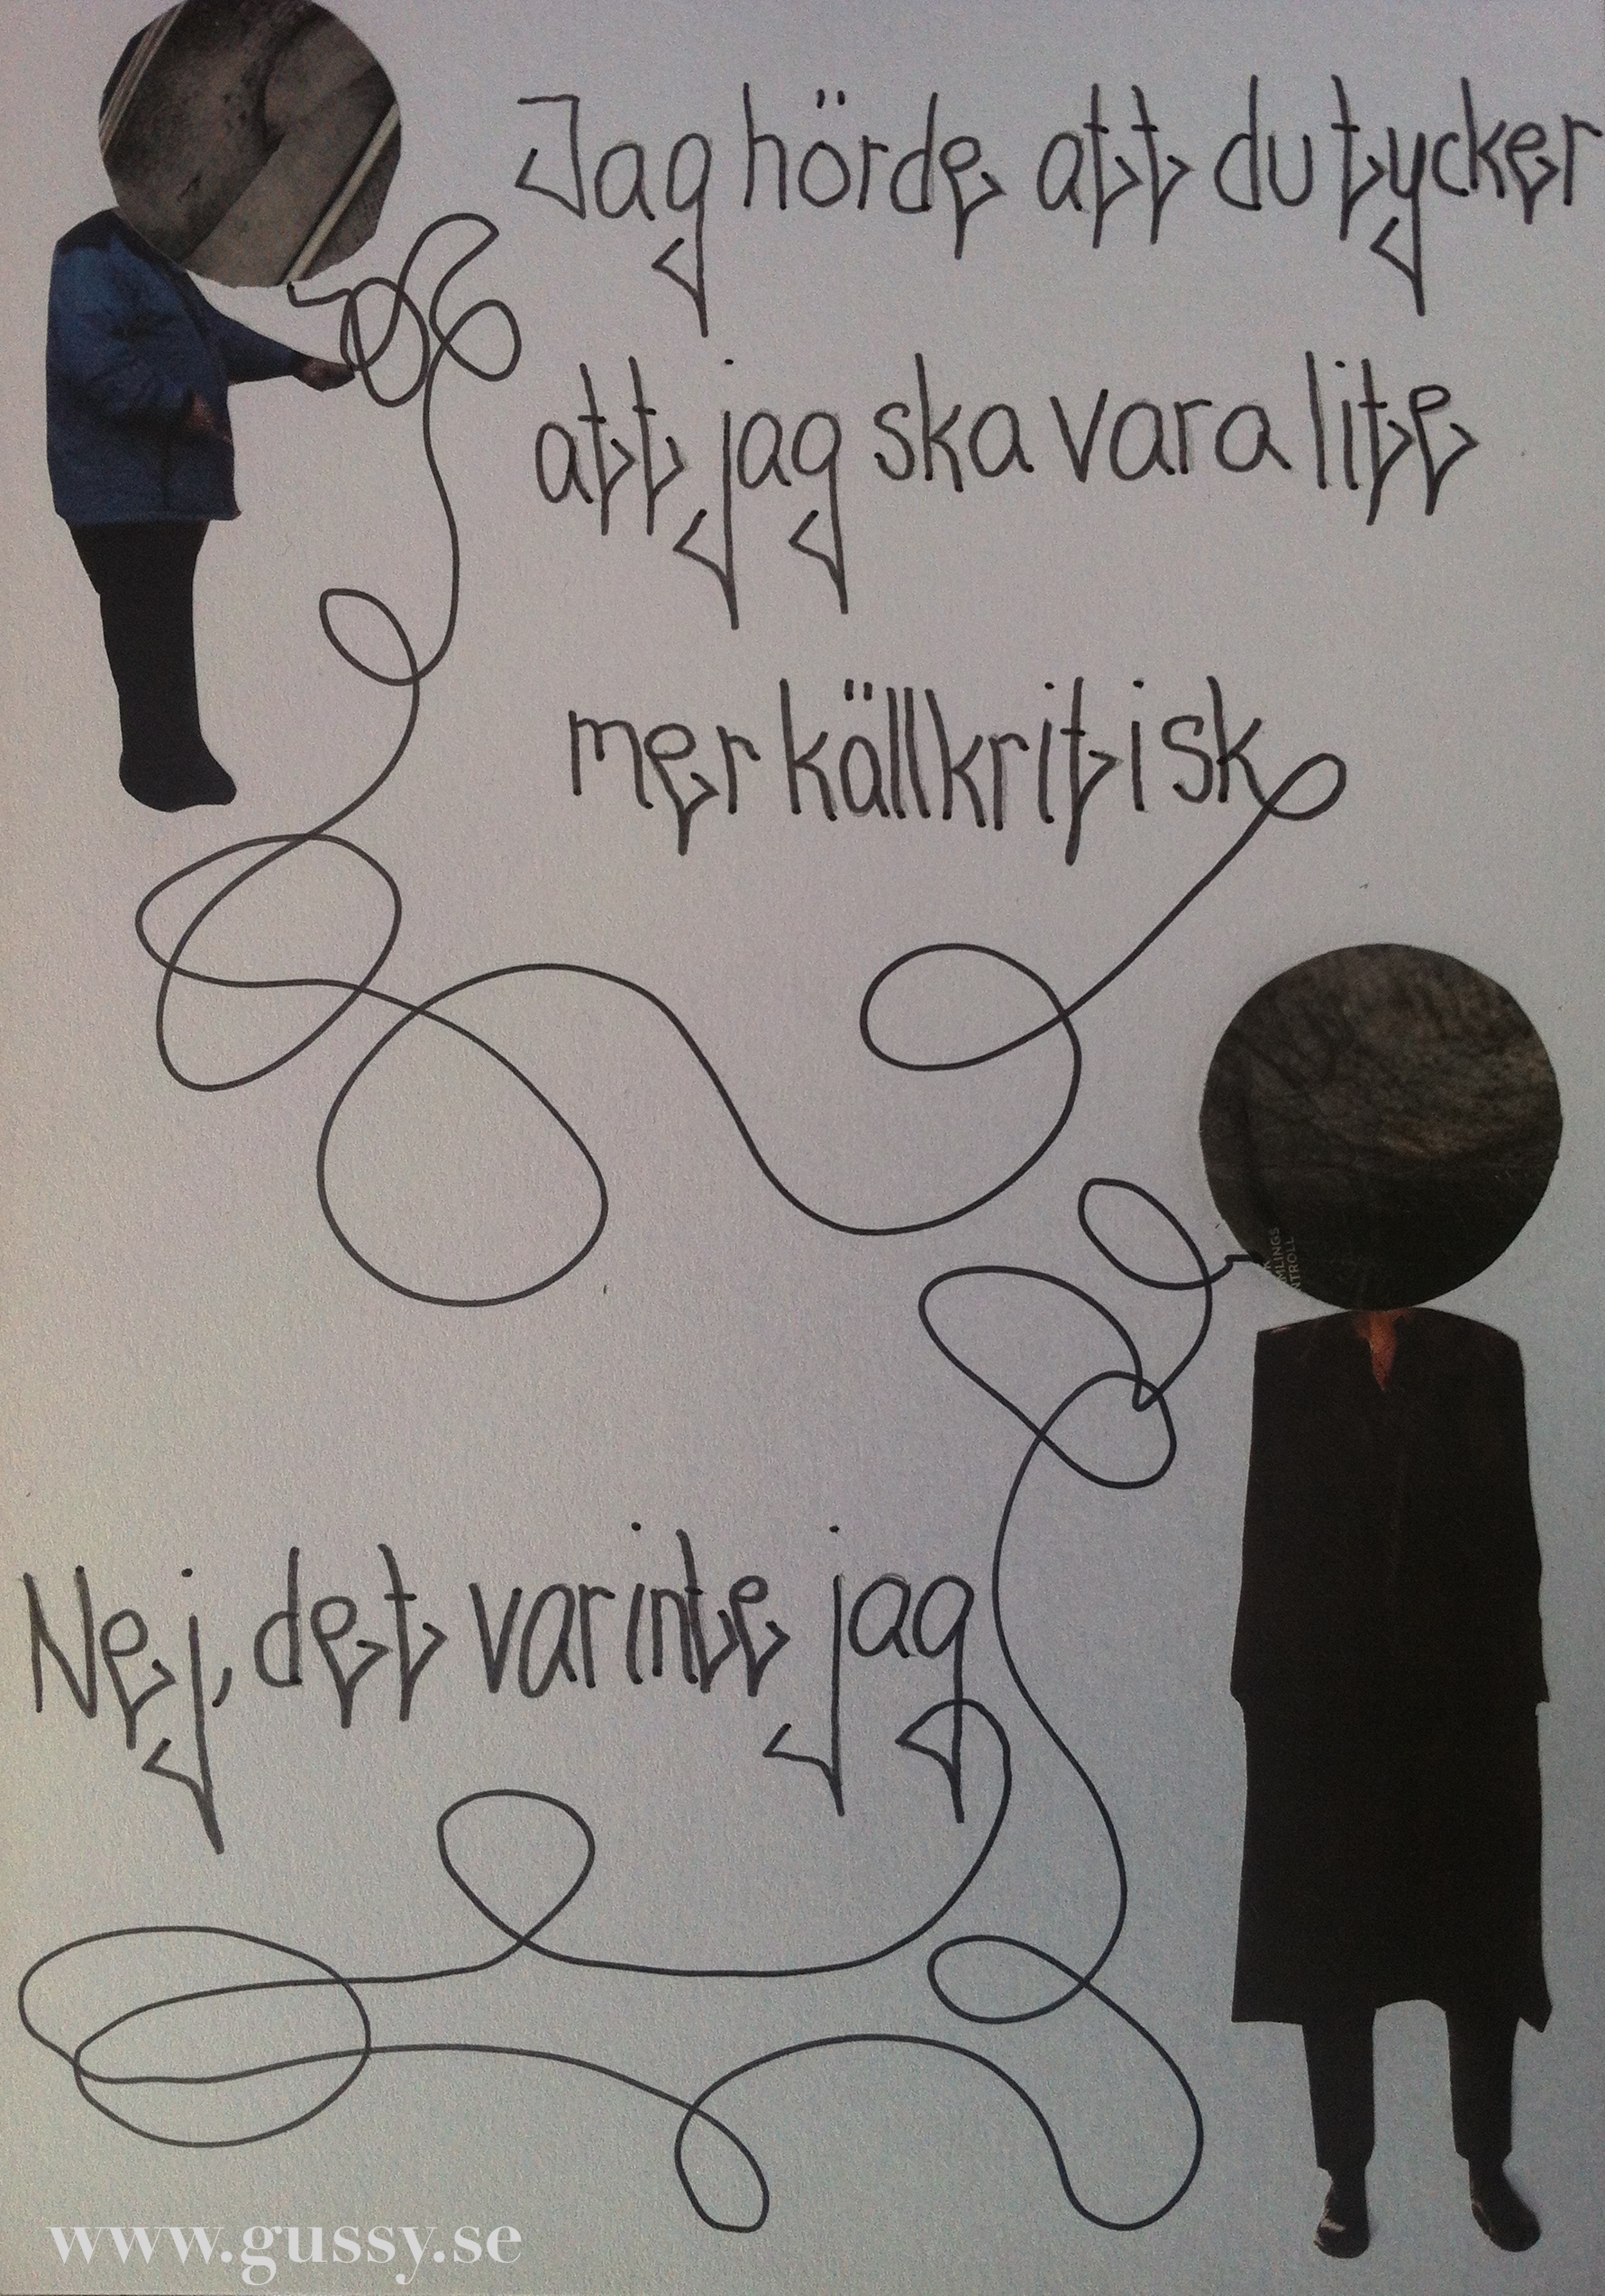 Jag hörde att du tycker
att jag ska vara lite
mer källkritisk
MLINGS
NTROLL
Nej, det var inte jag
www.gussy.se